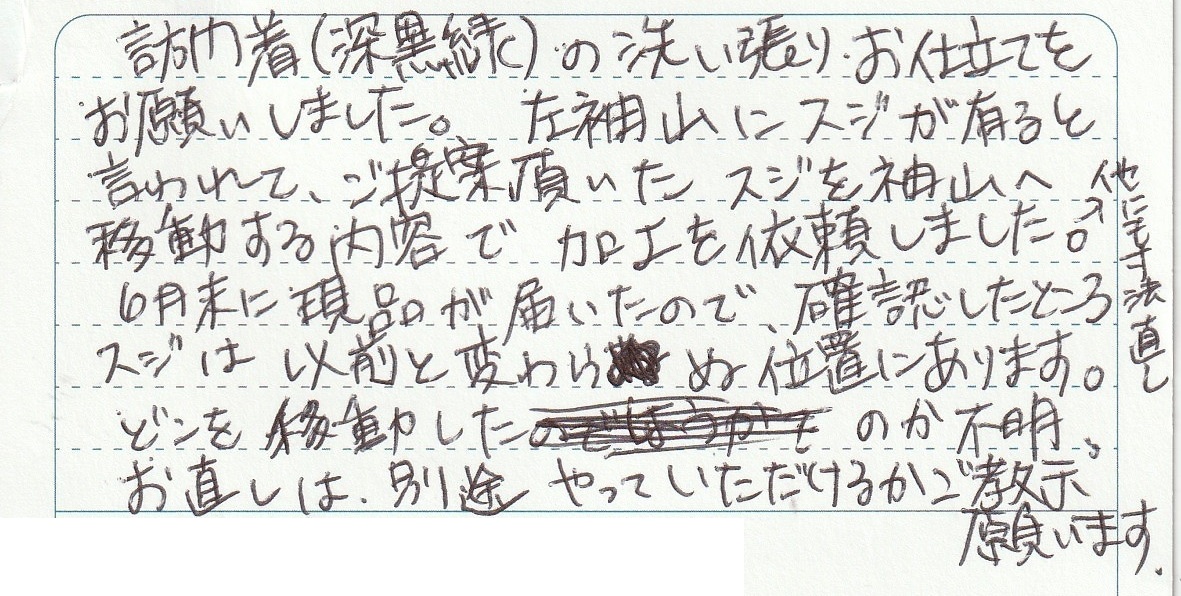 訪問着(深黒緑)の洗い張り・お仕立てを
お願いしました。 左袖山にスジが有ると
言われて、ご提案頂いた スジを袖山へ
移動する内容で 加工を依頼しました。
他にも寸法直し
6月末に現品が届いたので、確認したところ
スジは 以前と変わらぬ位置にあります。
どこを移動したのか不明、
お直しは、別途 やっていただけるかご教示
願います。